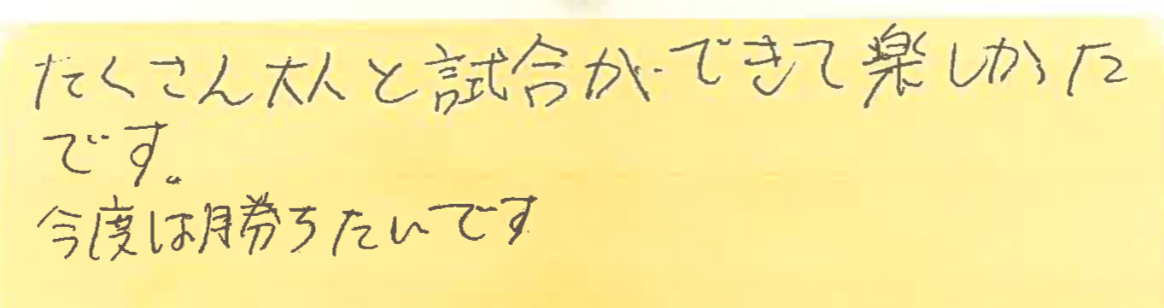 たくさん大人と試合ができて楽しかった
です。
今度は勝ちたいです